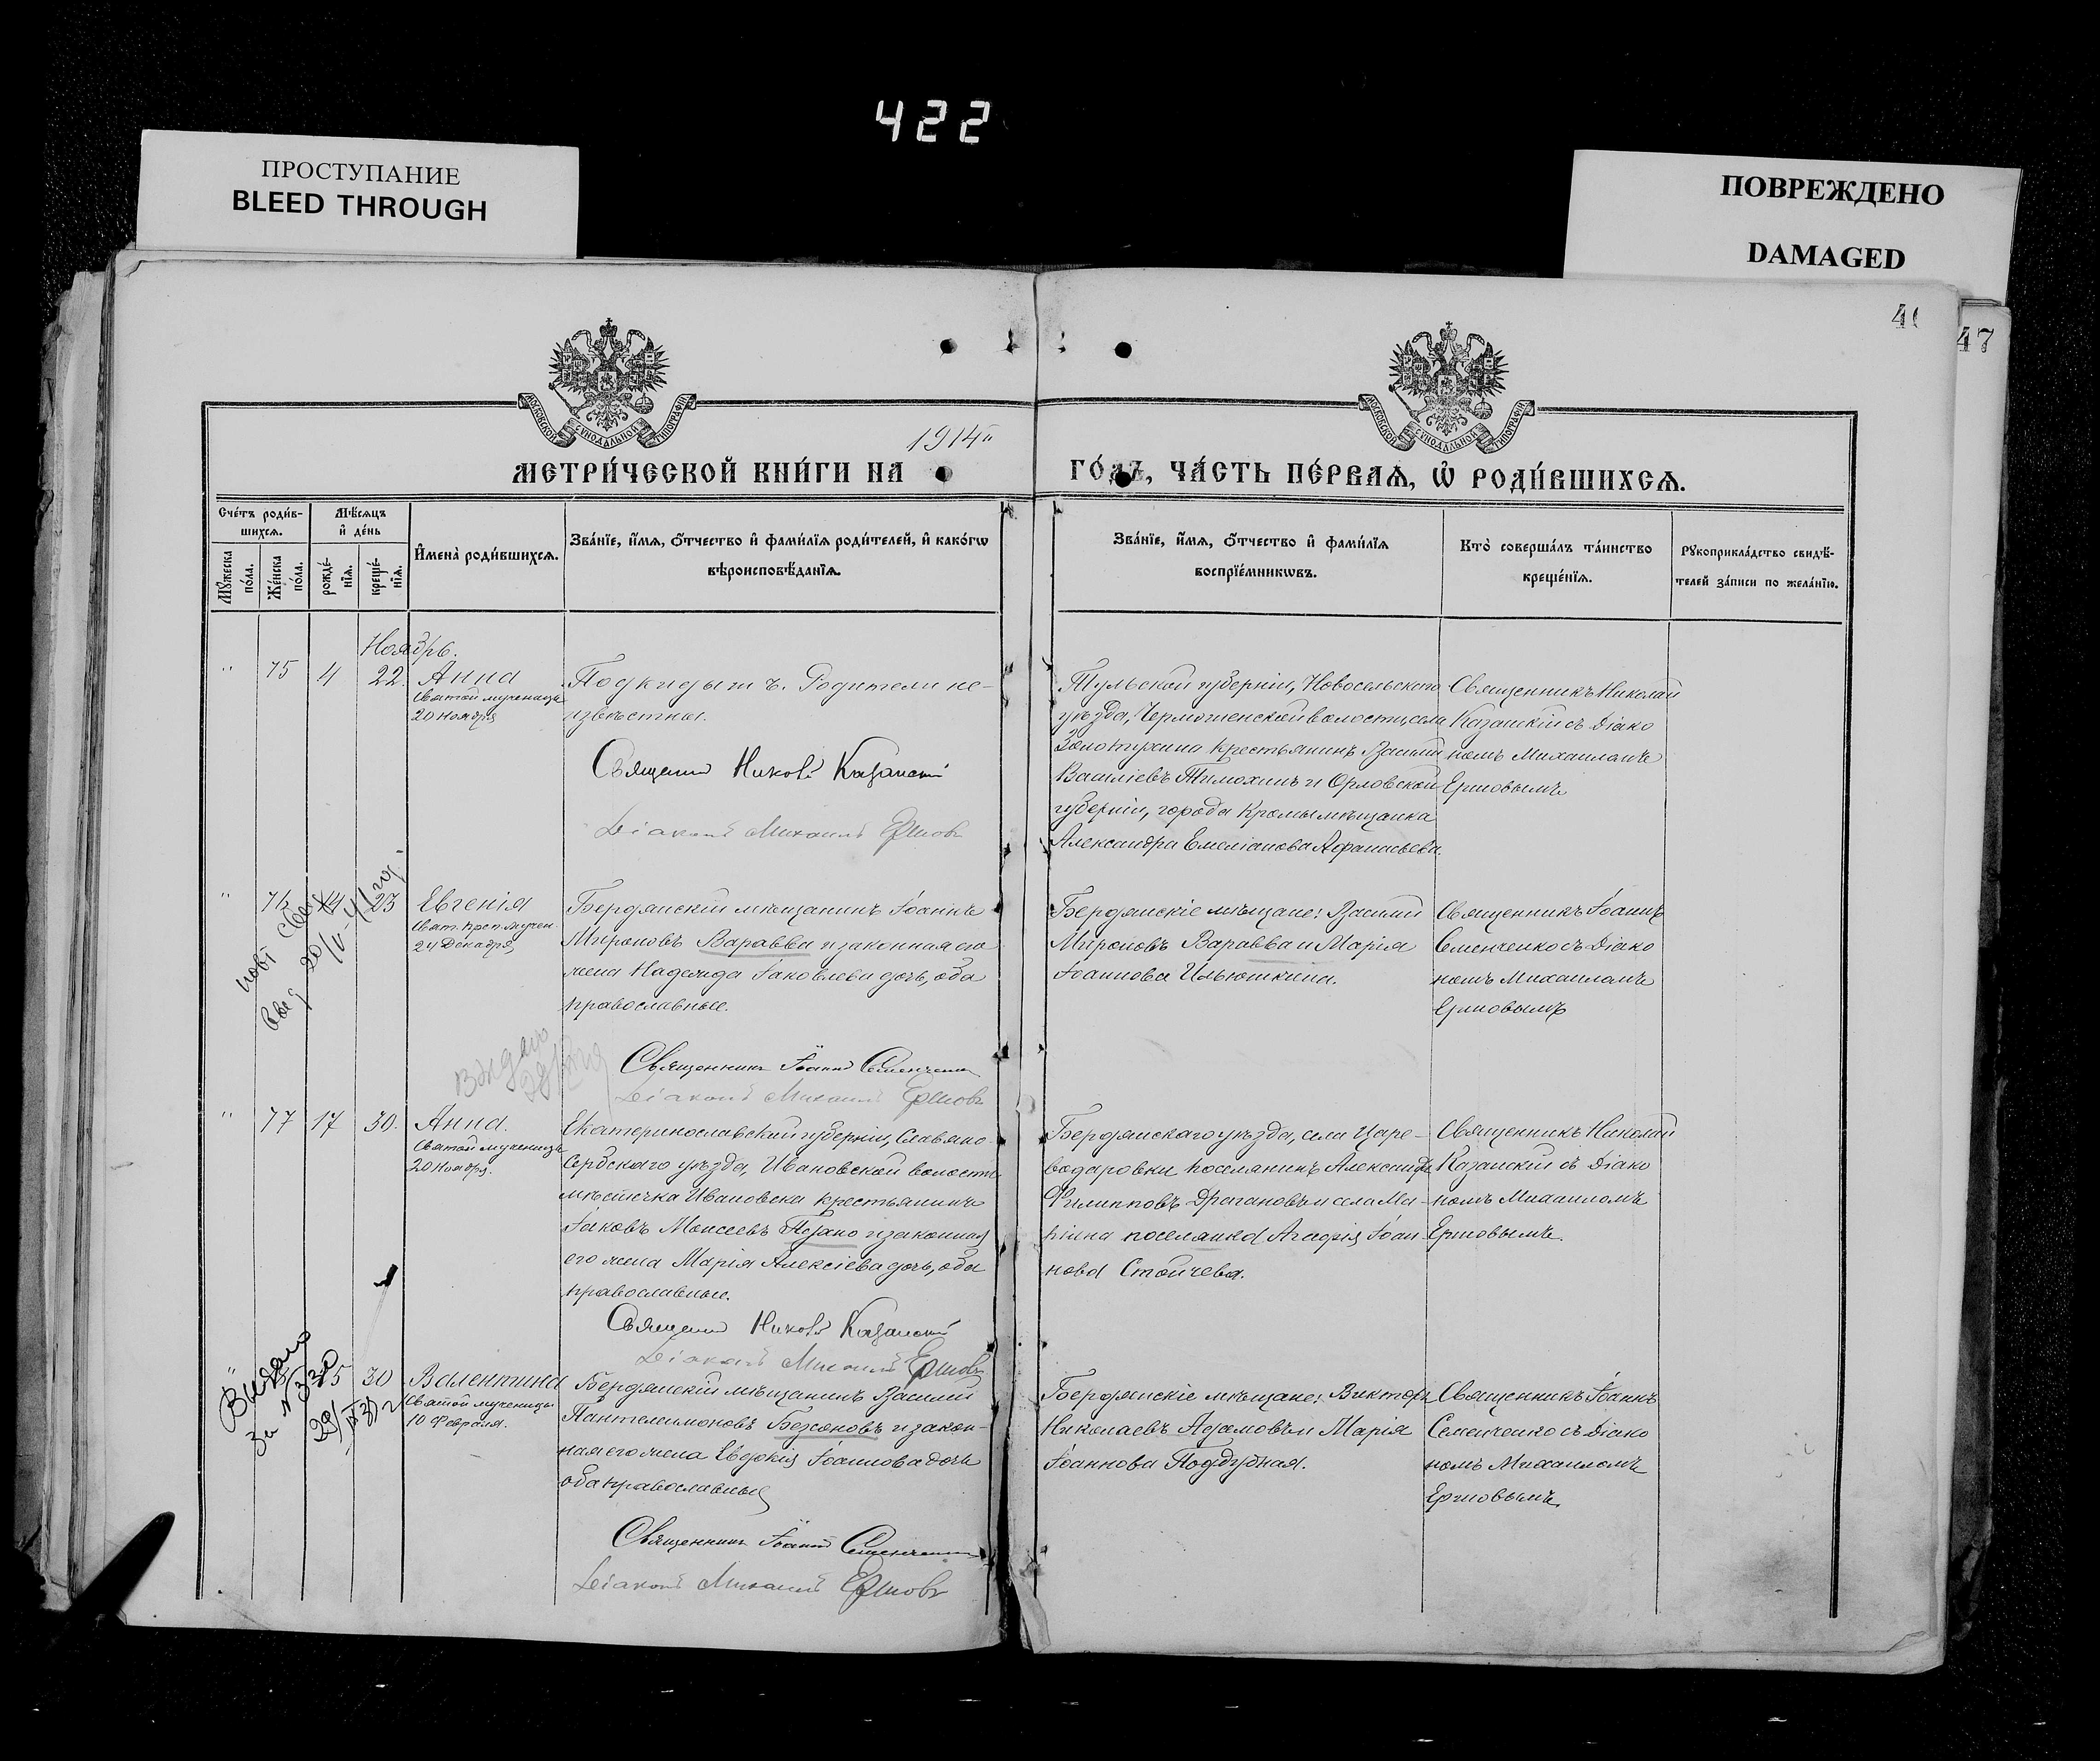 422
ПРОСТУПАНИЕ
BLEED THROUGH
ПОВРЕЖДЕНО
DAMAGED
47
МОСКОВСКОЙ СѴНОДАЛЬНОЙ ТИПОГРАФІИ
МОСКОВСКОЙ СѴНОДАЛЬНОЙ ТИПОГРАФІИ
1914
МЕТРИ́ЧЕСКОЙ КНИ́ГИ НА
ГО́ДЪ, ЧА́СТЬ ПЕ́РВАѦ, Ѡ҆ РОДИ́ВШИХСѦ.
Сче́тъ роди́в-
шихсѧ.
Мѣ́сѧцъ
и҆ де́нь
Мꙋ́жеска
по́ла.
Же́нска
по́ла.
рожде́-
нїѧ.
креще́-
нїѧ.
И҆мена̀ роди́вшихсѧ.
Зва́нїе, и҆́мѧ, ѻ҆́тчество и҆ фами́лїѧ роди́телей, и҆ како́гѡ
вѣроисповѣ́данїѧ.
Зва́нїе, и҆́мѧ, ѻ҆́тчество и҆ фами́лїѧ
воспрїе́мникѡвъ.
Кто̀ соверша́лъ та́инство
креще́нїѧ.
Рꙋкоприкла́дство свидѣ́-
телей за́писи по жела́нїю.
Ноябрь.
" 75 4 22. Анна
Святой мученицы
20 ноября
Подкидышъ. Родители не-
извѣстны.
Священн Никол Казанскій
Діаконъ Михаилъ Ершовъ
Тульской губерніи, Новосельскаго
уѣзда, волости, села
Золотухина крестьянинъ Василій
Василіевъ Тимохинъ и Орловской
губерніи, города Кромы мѣщанка
Александра Емеліанова Афанасьева.
Священникъ Николай
Казанскій съ Діако
номъ Михаиломъ
Ершовымъ
" 76 14 23 Евгенія
Свят. преп. мучен.
24 Декабря,
Бердянскій мѣщанинъ Іоаннъ
Мироновъ Варавва и законная его
жена Надежда Іаковлева дочь, оба
православные.
Священникъ Іоаннъ Семенченко
Діаконъ Михаилъ Ершовъ
Бердянскіе мѣщане: Василій
Мироновъ Варавва и Марія
Іоаннова Ильюшкина.
Священникъ Іоаннъ
Семенченко съ Діако
номъ Михаиломъ
Ершовымъ
" 77 17 30. Анна.
Святой мученицы
20 Ноября.
Екатеринославской губерніи, Славяно-
сербскаго уѣзда, Ивановской волости
мѣстечка Ивановска крестьянинъ
Іаковъ Моисеевъ и законная
его жена Марія Алексіева дочь, оба
православные.
Священн Никол Казанскій
Діаконъ Михаилъ Ершовъ
Бердянскаго уѣзда, села Царе-
водаровки поселянинъ Александръ
Филипповъ Драгановъ и села Ма-
ріина поселянка Агафія Іоан-
нова Стойчева.
Священникъ Николай
Казанскій съ Діако
номъ Михаиломъ
Ершовымъ.
Выдано
" 30 Валентина
Святой мученицы
10 Февраля.
Бердянскій мѣщанинъ Василій
Пантелеимоновъ Безсоновъ и закон-
ная его жена Евдокія Іоаннова дочь
оба православные
Священникъ Іоаннъ Семенченко
Діаконъ Михаилъ Ершовъ
Бердянскіе мѣщане: Викторъ
Николаевъ Адамовъ и Марія
Іоаннова Поддубная.
Священникъ Іоаннъ
Семенченко съ Діако
номъ Михаиломъ
Ершовымъ.